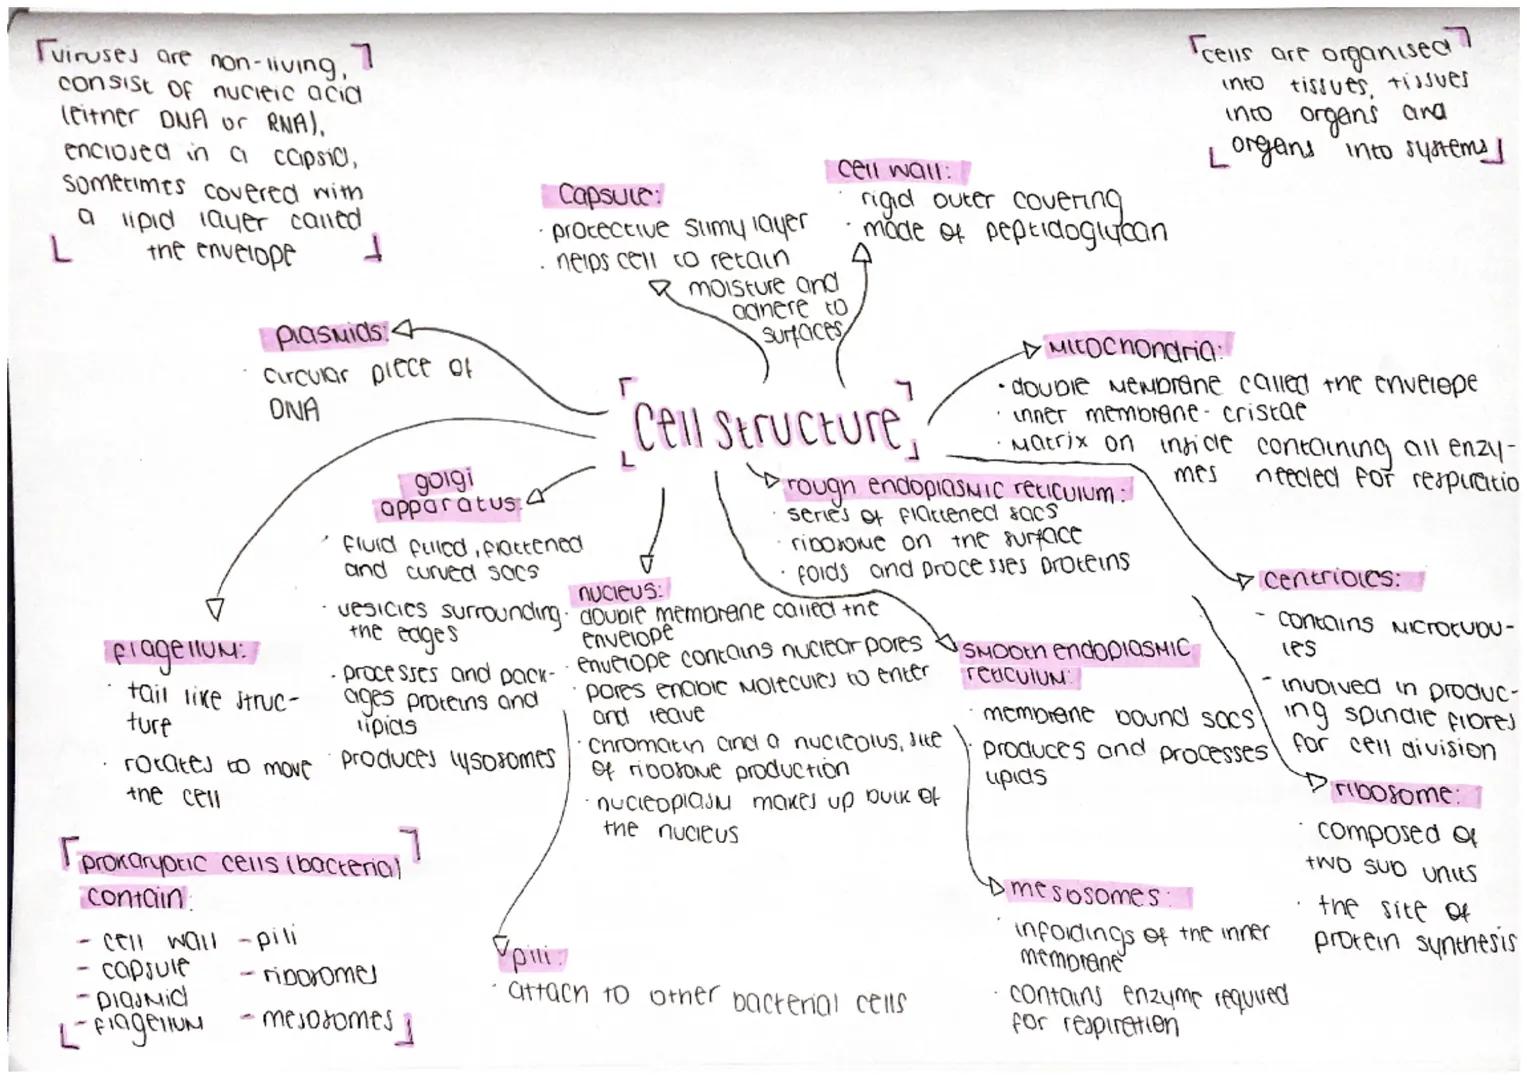 viruses are non-living,
consist of nucleic acid
(either DNA or RNA),
enclosed in a capsid,
sometimes covered with
a lipid layer called
the envelope
cells are organised
into tissues, tissues
into organs and
organs into systems
Capsule:
· protective slimy layer
· helps cell to retain
moisture and
adhere to
surfaces
cell wall:
· rigid outer covering
· made of peptidoglycan
plasmids:
· circular piece of
DNA
Mitochondria:
· double membrane called the envelope
· inner membrane - cristae
· Matrix on inside containing all enzy-
mes needed for respiratio
Cell structure
golgi
apparatus:
· fluid filled, flattened
and curved sacs
· vesicles surrounding
the edges
· processes and pack-
ages proteins and
lipids
· produces lysosomes
rough endoplasmic reticulum:
· series of flattened sacs
· ribosome on the surface
· folds and processes proteins
nucleus:
· double membrane called the
envelope
· envelope contains nuclear pores
· pores enable molecules to enter
and leave
· chromatin and a nucleolus, site
of ribosome production
· nucleoplasm makes up bulk of
the nucleus
centrioles:
- contains microtubu-
les
- involved in produc-
ing spindle fibres
for cell division
flagellum:
· tail like struc-
ture
· rotates to move
the cell
smooth endoplasmic
reticulum:
· membrane bound sacs
· produces and processes
lipids
ribosome:
· composed of
two sub units
· the site of
protein synthesis
prokaryotic cells (bacterial)
contain:
- cell wall - pili
- capsule - ribosomes
- plasmid
- flagellum - mesosomes
pili:
· attach to other bacterial cells
mesosomes:
· infoldings of the inner
membrane
· contains enzyme required
for respiration